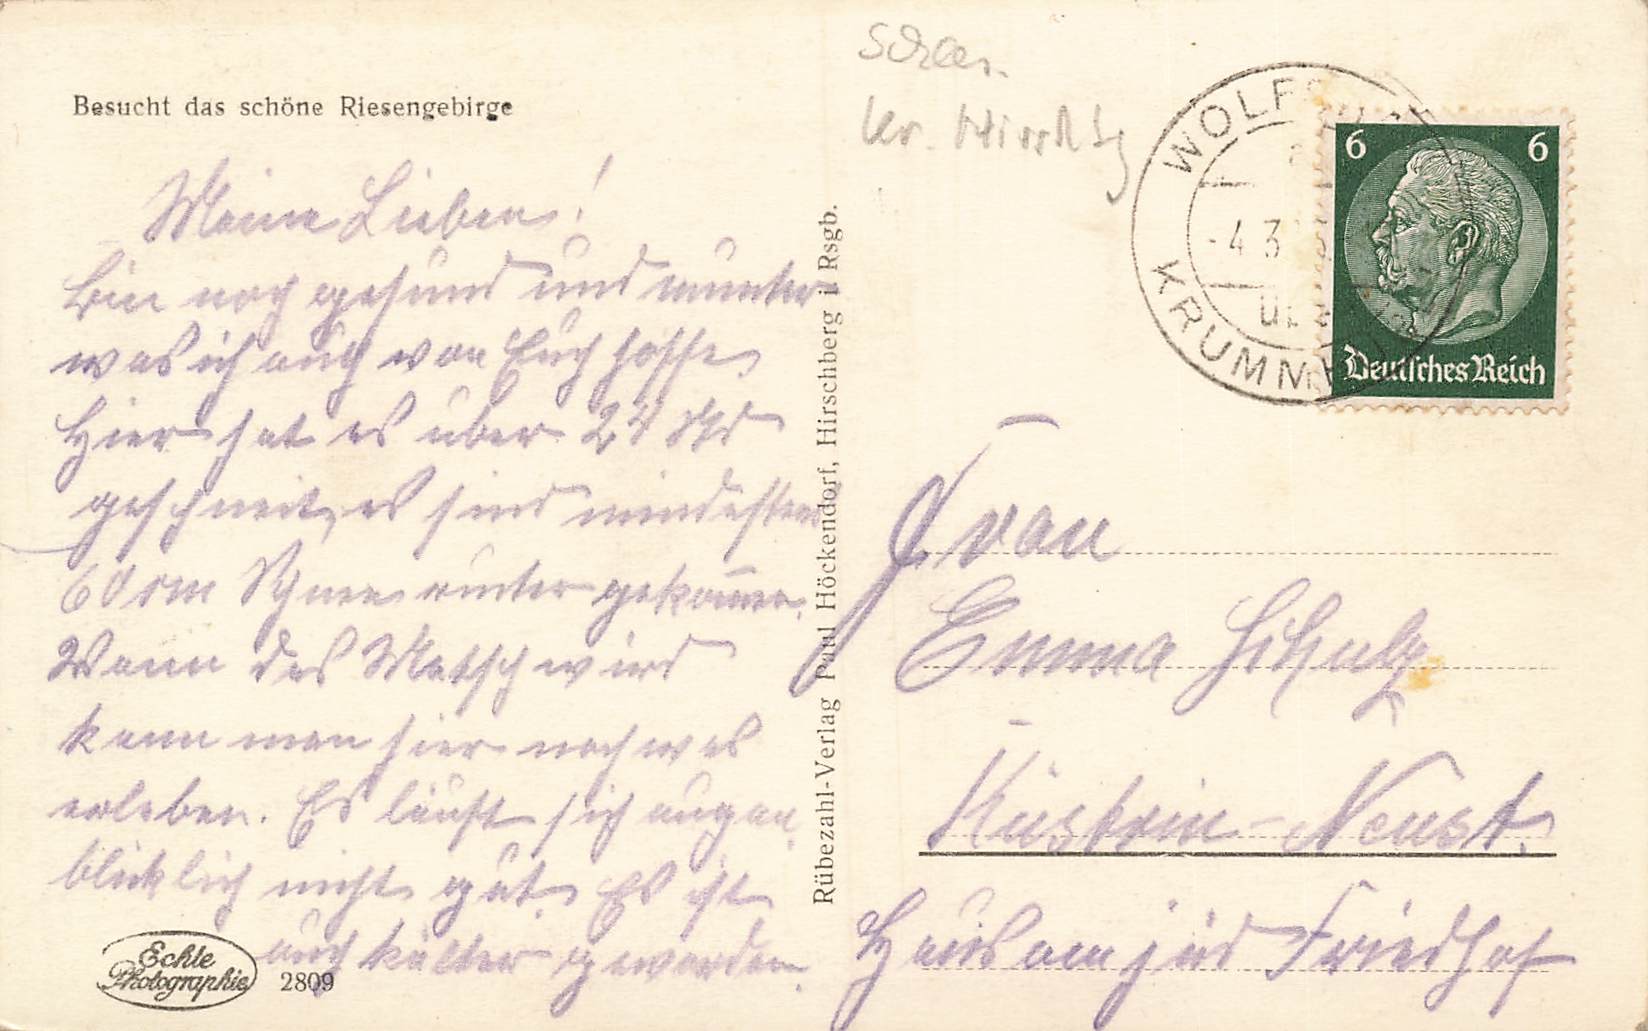 Besucht das schöne Riesengebirge
Meine Lieben!
Bin noch gesund und munter
was ich auch von Euch hoffe.
Hier hat es über 24 Std
geschneit, es sind mindestens
60 cm Schnee runter gekom̅en.
Wenn das Matsch wird
kann man hier noch was
erleben. Es läuft sich augen
blicklich nicht gut. Es ist
auch kälter geworden.
Echte
Photographie
2809
Rübezahl-Verlag Paul Höckendorf, Hirschberg i. Rsgb.
Schles.
Kr. Hirschbg
WOLFS
-4.3
KRUMM
6 6
Deutsches Reich
Frau
Emma Schulz
Küstrin-Neust.
Haus am jüd Friedhof